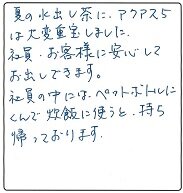 夏の水出し茶に、アクアス5
は大変重宝しました。
社員・お客様に安心して
お出しできます。
社員の中には、ペットボトルに
くんで炊飯に使うと、持ち
帰っております。